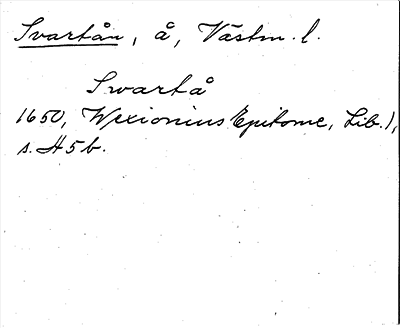 Svartån, å, Västm. l.
Swartå
1650, Wexionius Epitome, Lib. 1,
s. H 5 b.